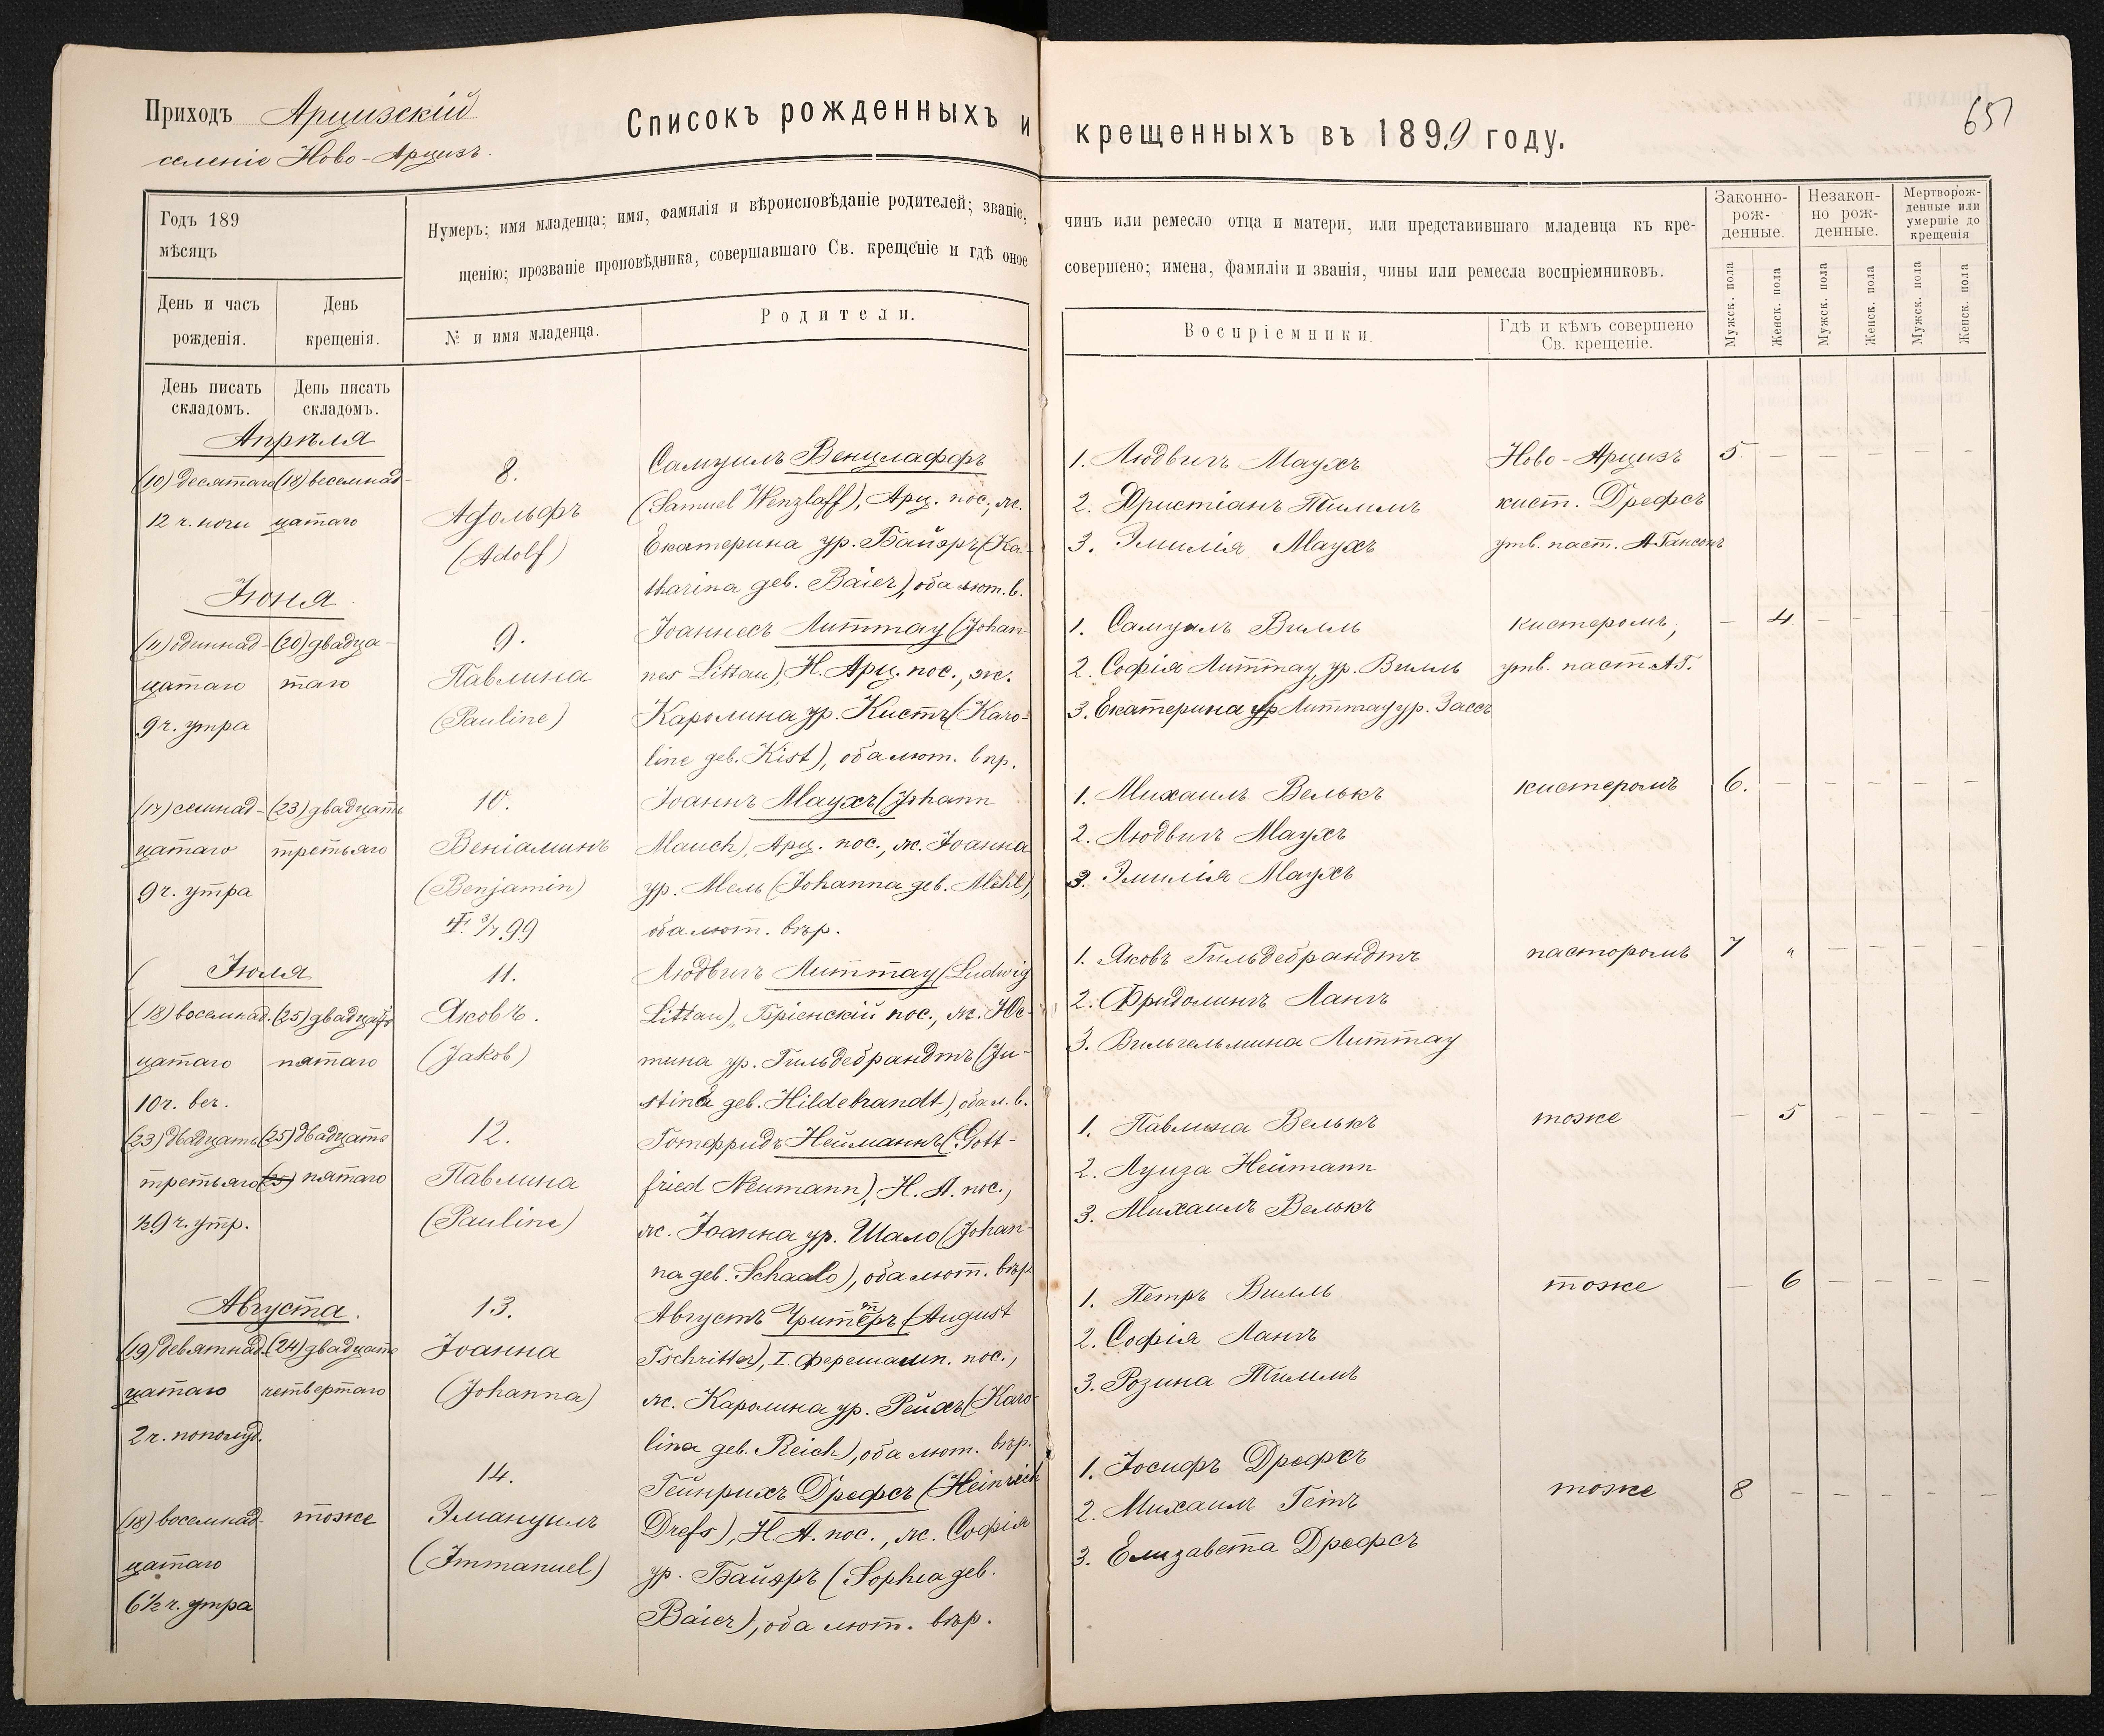 Приходъ Арцизскій
селеніе Ново-Арцизъ.
Списокъ рожденныхъ и крещенныхъ въ 1899 году.
651
Годъ 189
мѣсяцъ
День и часъ
рожденія.
День
крещенія.
Нумеръ; имя младенца; имя, фамилія и вѣроисповѣданіе родителей; званіе, чинъ или ремесло отца и матери, или представившаго младенца къ кре-
щенію; прозваніе проповѣдника, совершавшаго Св. крещеніе и гдѣ оное совершено; имена, фамиліи и званія, чины или ремесла воспріемниковъ.
№ и имя младенца.
Родители.
Воспріемники.
Гдѣ и кѣмъ совершено
Св. крещеніе.
Законно-
рож-
денные.
Незакон-
но рож-
денные.
Мертворож-
денные или
умершіе до
крещенія
Мужск. пола
Женск. пола
Мужск. пола
Женск. пола
Мужск. пола
Женск. пола
День писать
складомъ.
День писать
складомъ.
Апрѣля
(10) десятаго
12 ч. ночи
(18) весемнад-
цатаго
8.
Адольфъ
(Adolf)
Самуилъ Венцлаффъ
(Samuel Wenzlaff), Арц. пос., ж.
Екатерина ур. Байэръ (Ka-
tharina geb. Baier), оба лют. в.
1. Людвигъ Маухъ
2. Христіанъ Тиммъ
3. Эмилія Маухъ
Ново-Арцизъ
кист. Дрефсъ
утв. паст. А Гансонъ
5. — — — — —
Іюня
(11) одиннад-
цатаго
9 ч. утра
(20) двадца-
таго
9.
Павлина
(Pauline)
Іоаннесъ Литтау (Johan-
nes Littau), Н. Арц. пос., ж.
Каролина ур. Кистъ (Karo-
line geb. Kist), оба лют. вѣр.
1. Самуилъ Вилль
2. Софія Литтау, ур. Вилль
3. Екатерина ур Литтау ур. Зассъ
кистеромъ,
утв. паст. А.Г.
— 4. — — — —
(17) семнад-
цатаго
9 ч. утра
(23) двадцать
третьяго
10.
Веніаминъ
(Benjamin)
Іоаннъ Маухъ (Johann
Mauch), Арц. пос., ж. Іоанна
ур. Мель (Johanna geb. Mehl),
оба лют. вѣр.
1. Михаилъ Велькъ
2. Людвигъ Маухъ
3. Эмилія Маухъ
кистеромъ
6. — — — — —
Іюля
(18) восемнад-
цатаго
10 ч. веч.
(25) двадцать
пятаго
11.
Яковъ.
(Jakob)
Людвигъ Литтау (Ludwig
Littau), Бріенскій пос., ж. Юс-
тина ур. Гильдебрандтъ (Ju-
stina geb. Hildebrandt), оба л. в.
1. Яковъ Гильдебрандтъ
2. Фридолинъ Лангъ
3. Вильгельмина Литтау
пасторомъ
7 " — — — —
(23) двадцать
третьяго
½9 ч. утр.
(25) двадцать
(25) пятаго
12.
Павлина
(Pauline)
Готфридъ Нейманнъ (Gott-
fried Neumann), Н. А. пос.,
ж. Іоанна ур. Шало (Johan-
na geb. Schaalo), оба лют. вѣр.
1. Павлина Велькъ
2. Луиза Нейmann
3. Михаилъ Велькъ
тоже
— 5 — — — —
Августа.
(19) девятнад-
цатаго
2 ч. пополуд.
(24) двадцать
четвертаго
13.
Іоанна
(Johanna)
Августъ Чриттеръ (August
Tschritter), I. Ферешамп. пос.,
ж. Каролина ур. Рейхъ (Karo-
lina geb. Reich), оба лют. вѣр.
1. Петръ Вилль
2. Софія Лангъ
3. Розина Тиммъ
тоже
— 6 — — — —
(18) восемнад-
цатаго
6½ ч. утра
тоже
14.
Эмануилъ
(Immanuel)
Гейнрихъ Дрефсъ (Heinrich
Drefs), Н. А. пос., ж. Софія
ур. Байэръ (Sophia geb.
Baier), оба лют. вѣр.
1. Іосифъ Дрефсъ
2. Михаилъ Гетъ
3. Елизавета Дрефсъ
тоже
8 — — — — —